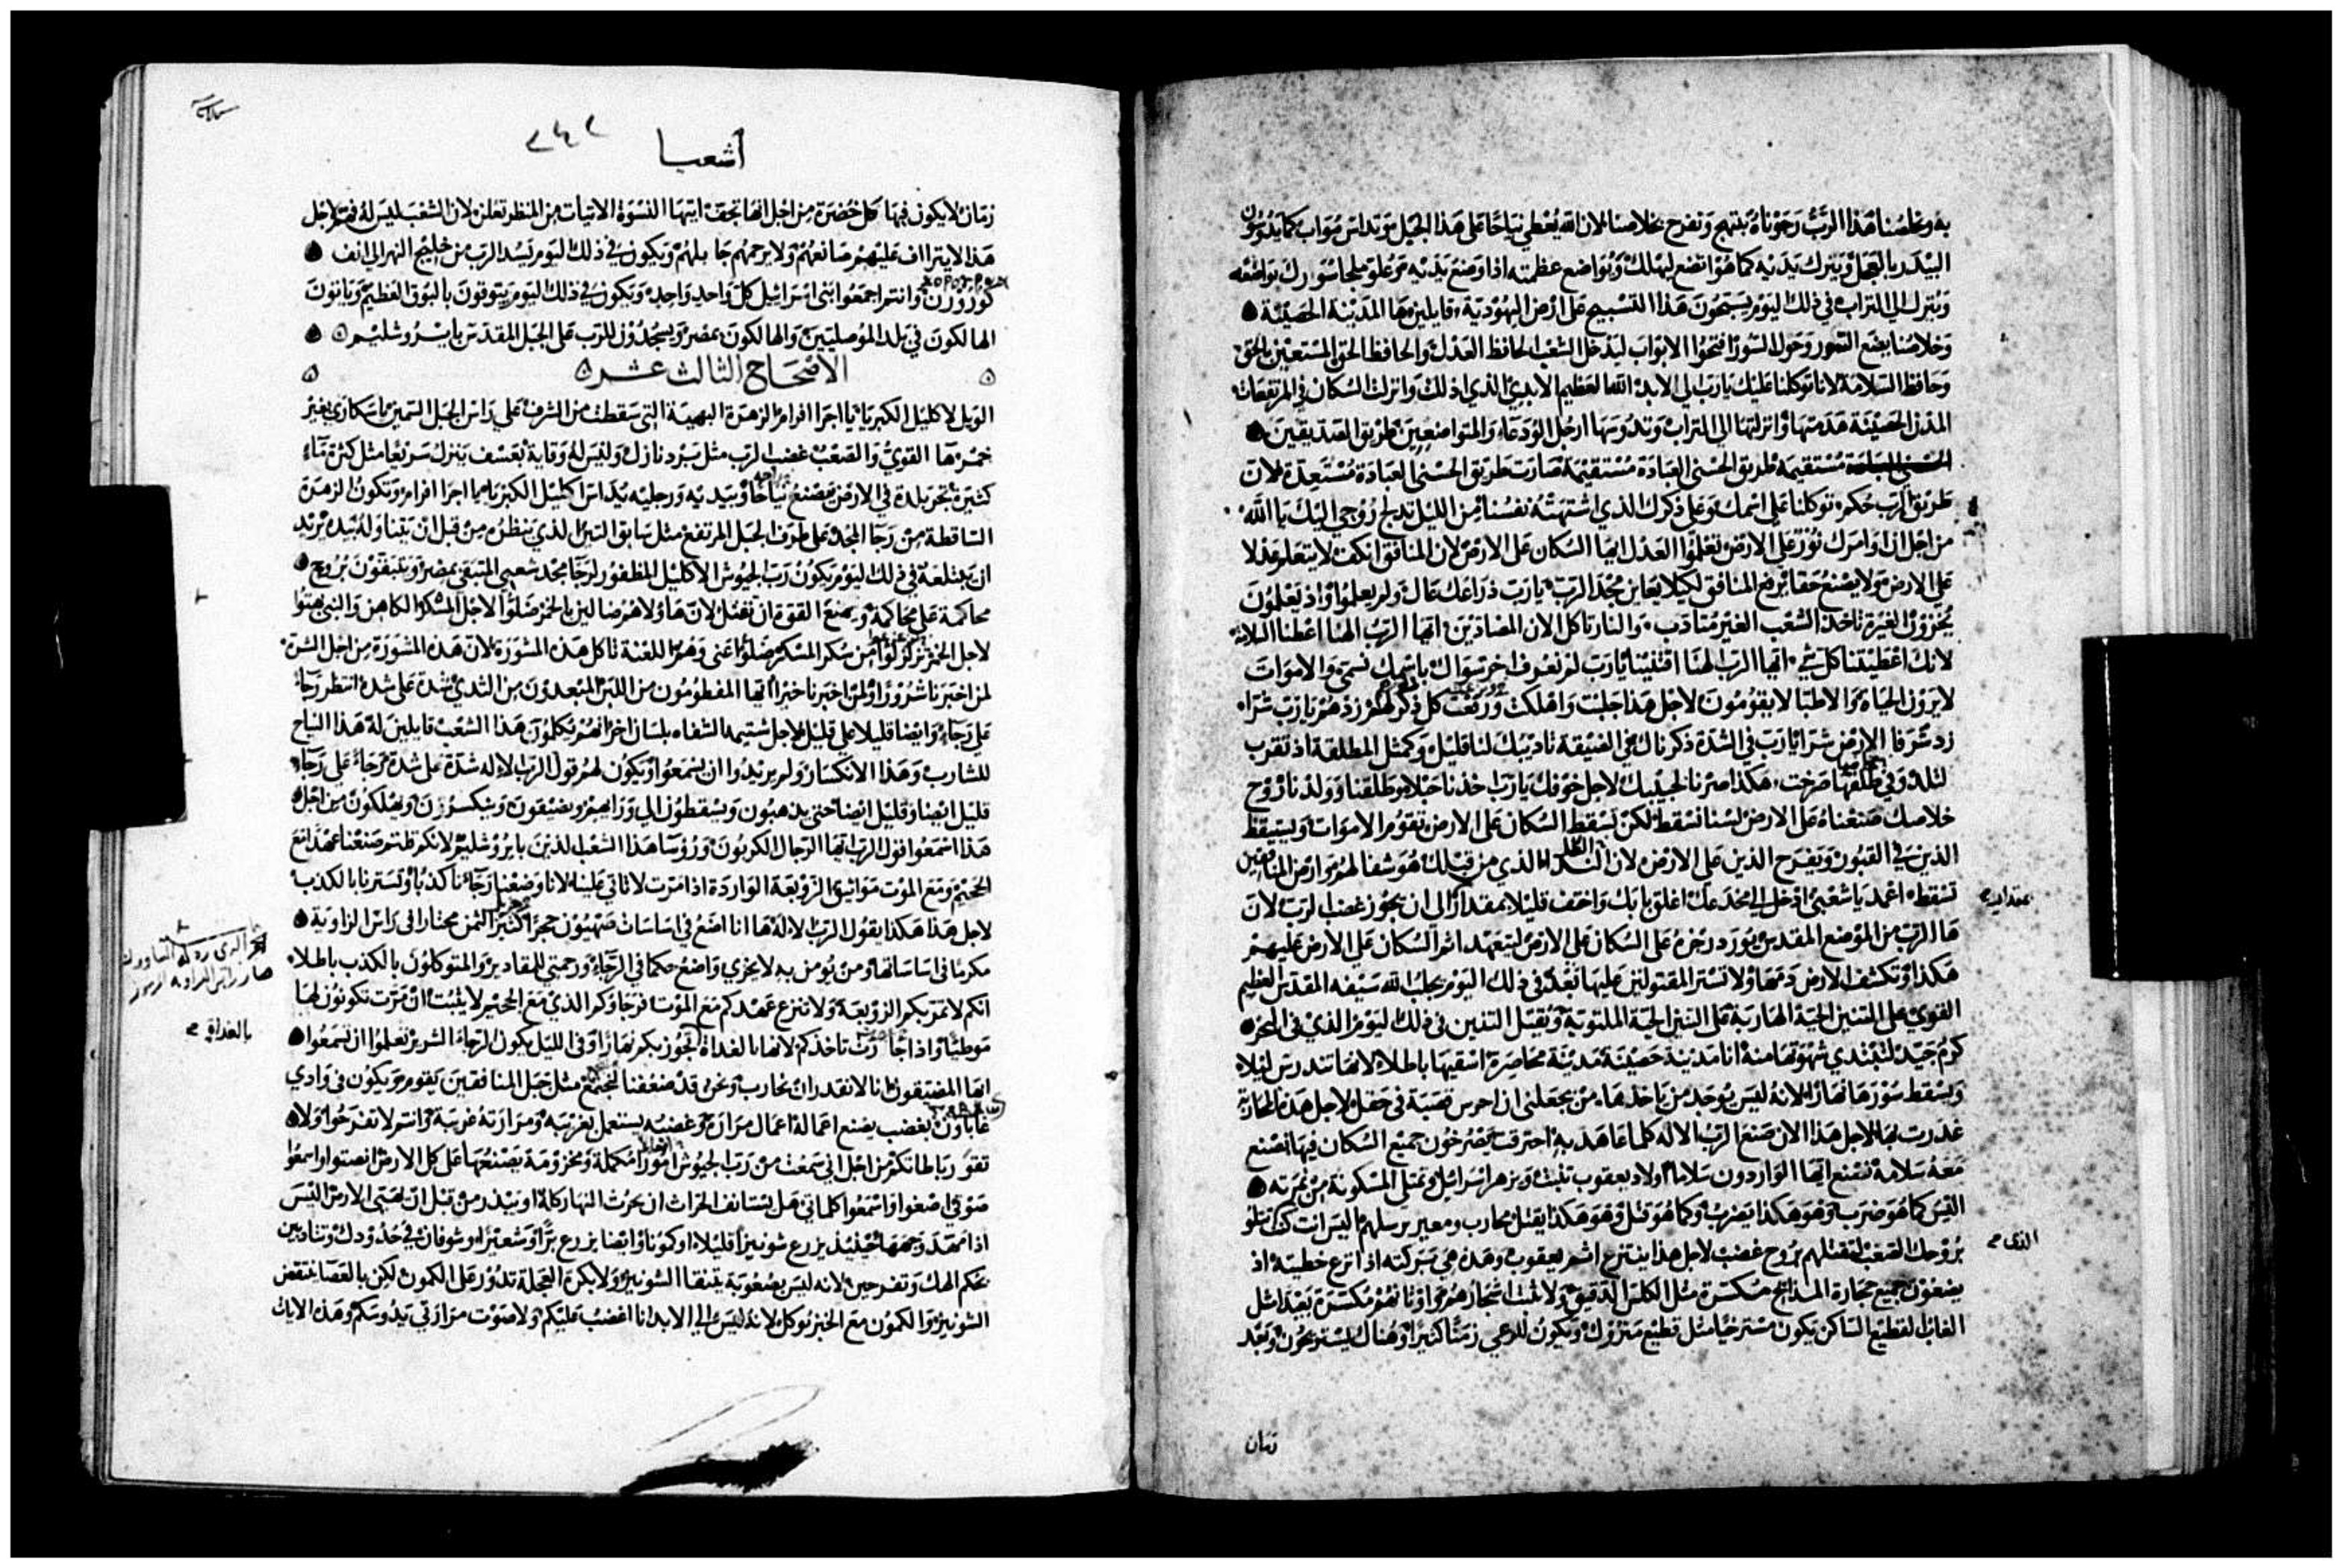 به وخلصنا هذا الرب رجوناه نبتهج ونفرح بخلاصنا لان الله يعطي نياحا على هذا الجبل وتداس مواب كما يدوسون
البيدر بالعجل ويترك يديه كما هو اتضع ليهلك ويواضع عظمته اذا وضع يديه وعلو ملجا سورك يواضعه
وينزل الي التراب في ذلك اليوم يسبحون هذا التسبيح على ارض اليهودية قايلين ها المدينة الحصينة
وخلاصنا يضع السور وحول السور افتحوا الابواب ليدخل الشعب الحافظ العدل والحافظ الحق المستعين بالحق
وحافظ السلامة لانا توكلنا عليك يارب الي الابد الله العظيم الابدي الذي اذللت وانزلت السكان في المرتفعات
المدن الحصينة هدمتها وانزلتها الي التراب وتدوسها ارجل الودعاء والمتواضعين طريق الصديقين
مستقيمة طريق الحسني العبادة مستقيمة صارت طريق الحسني العبادة مستعدة لان
طريق الرب حكم توكلنا على اسمك وعلى ذكرك الذي اشتهته نفسنا من الليل تدلج روحي اليك يا الله
من اجل ان اوامرك نور على الارض تعلموا العدل ايها السكان على الارض لان المنافق انكف لا يتعلم عدلا
على الارض ولا يصنع حقا يرفع المنافق لكيلا يعاين مجد الرب يارب ذراعك عال ولم يعلموا واذ يعلمون
يخزون الغيرة تاخذ الشعب الغير متادب والنار تاكل الان المضادين ايها الرب الهنا اعطنا السلامة
لانك اعطيتنا كل شي ايها الرب الهنا اقتنينا يارب لم نعرف اخر سواك باسمك نسمي والاموات
لا يرون الحياة والاطبا لا يقومون لاجل هذا جلبت واهلكت ورفعت كل ذكر لهم زدهم يارب شرا
زد شرفا الارض شرا يارب في الشدة ذكرناك في الضيقة تاديبك لنا قليل وكمثل المطلقة اذ تقرب
لتلد وفي طلقها صرخت هكذا صرنا لحبيبك لاجل خوفك يارب اخذنا حبلا وطلقنا وولدنا روح
خلاصك صنعناه على الارض لسنا نسقط لكن يسقط السكان على الارض تقوم الاموات ويستيقظ
الذين في القبور ويفرح الذين على الارض لان الطل الذي من قبلك هو شفا لهم وارض المنافقين
تسقط اغد يا شعبي ادخل الي مخدعك اغلق بابك واختف قليلا بمقدار الى ان يجوز غضب الرب لان
ها الرب من الموضع المقدس يورد رجزه على السكان على الارض ليتعهد اثم السكان على الارض عليهم
هكذا وتكشف الارض دمها ولا تستر المقتولين عليها بعد في ذلك اليوم يجلب الله سيفه المقدس العظيم
القوي على التنين الحية الهاربة على التنين الحية الملتوية ويقتل التنين في ذلك اليوم الذي في البحر
كرم جيد لتبتدي شهوتها منه انا مدينة حصينة مدينة محاصرة اسقيها باطلا لانها ستدرس ليلا
ويسقط سورها نهارا لانه ليس يوجد من ياخذها من يجعلني ان احرس قصبة في حقل لاجل هذه المحاربة
غدرت بها لاجل هذا الان صنع الرب الاله كلما عاهد به احترقت يصرخون جميع السكان فيها نصنع
معه سلامة نصنع ايها الواردون سلاما اولاد يعقوب تنبت ويزهر اسرائيل وتمتلي المسكونة من ثمرته
اليس كما هو ضرب وهو هكذا يضرب وكما هو قتل وهو هكذا يقتل يحارب ومعير يرسلهم اليس انت كنت تتلو
بروحك الصعب لتقتلهم بروح غضب لاجل هذا ينتزع اثم يعقوب وهذه هي بركته اذا انزع خطيته اذ
يضعون جميع حجارة المذابح مكسرة مثل الكلس الدقيق ولا تثبت اشجارهم واوثانهم مكسرة بعيدا مثل
الغاب القطيع الساكن يكون مسترخيا مثل قطيع متروك ويكون للرعي زمنا كثيرا وهناك يستريحون وبعد
الذي
زمان
اشعيا
زمان لا يكون فيها كل خضرة من اجل انها تجف ايتها النسوة الاتيات من المنظر تعلن لان الشعب ليس له فهم لاجل
هذا لا يتراءف عليهم صانعهم ولا يرحمهم جابلهم ويكون في ذلك اليوم يسد الرب من خليج النهر الي انف
كورورن وانتم اجمعوا بني اسرائيل كل واحد واحد ويكون في ذلك اليوم يبوقون بالبوق العظيم وياتون
الهالكون في بلد الموصليين والهالكون بمصر ويسجدون للرب على الجبل المقدس بايروشليم
الاصحاح الثالث عشر
الويل لاكليل الكبرياء يا اجرا افرام الزهرة البهية التي سقطت من الشرف على راس الجبل السمين يا سكارى بغير
خمر ها القوي والصعب غضب الرب مثل برد نازل وليس له وقاية بعسف ينزل سريعا مثل كثرة ماء
كثيرة تجر بلدة في الارض يصنع نياحا وبيديه ورجليه يداس اكليل الكبرياء يا اجرا افرام وتكون الزهرة
الساقطة من رجا المجد على طرف الجبل المرتفع مثل سابق التين الذي ينظره من قبل ان يتناوله بيده يريد
ان يبتلعه في ذلك اليوم يكون رب الجيوش الاكليل المظفور لرجا مجد شعبي المتبقى بمصر ويتبقون بروح
محاكمة على محاكمة ويمنع القوة ان تقتل لان هاولا هم ضالين بالخمر ضلوا لاجل المسكر الكاهن والنبي بهتوا
لاجل الخمر تزلزلوا من سكر المسكر ضلوا اعني وهم اللعنة تاكل هذه المشورة لان هذه المشورة من اجل الشره
لمن اخبرنا شرورا ولمن اخبرنا خيرا ايها المفطومون من اللبن المبعدون من الثدي شدة على شدة انتظر رجاء
على رجاء وايضا قليلا على قليل لاجل شتيمة الشفاه بلسان اخر انهم يكلمون هذا الشعب قايلين له هذا النياح
للشارب وهذا الانكسار ولم يريدوا ان يسمعوا ويكون لهم قول الرب الاله شدة على شدة رجاء على رجاء
قليل ايضا وقليل ايضا حتى يذهبون ويسقطون الي ورايهم ويضيقون وينكسرون ويهلكون من اجل
هذا اسمعوا قول الرب ايها الرجال المكربون وروسا هذا الشعب الذين بايروشليم لانكم قلتم صنعنا عهدا مع
الجحيم ومع الموت مواثيق الزوبعة الواردة اذا مرت لا تاتي علينا لانا وضعنا رجاءنا كذبا ونستر نا بالكذب
لاجل هذا هكذا يقول الرب الاله ها انا اضع في اساسات صهيون حجرا كثير الثمن مختارا في راس الزاوية
مكرما في اساساتها ومن يومن به لا يخزي واضع حكما في الرجاء ورحمتي للمقادير والمتوكلون بالكذب باطلا
انكم لا تمر بكم الزوبعة ولا تنزع عهدكم مع الموت فرجاوكم الذي مع الجحيم لا يثبت ان مرت تكونون لها
موطيا واذا جازت تاخذكم لانها بالغداة تجوز بكم نهارا وفي الليل يكون الرجاء الشرير تعلموا ان تسمعوا
ايها المضيقون انا لا نقدر ان نحارب ونحن قد ضعفنا لنجتمع مثل جبل المنافقين يقوم ويكون في وادي
غاباون بغضب يصنع اعماله اعمال مرارة وغضبه يستعمل بغربته ومرارته غريبة وانتم لا تفرحوا ولا
تقو رباطاتكم من اجل اني سمعت من رب الجيوش امورا مكملة ومخزومة يصنعها على كل الارض انصتوا واسمعوا
صوتي اصغوا واسمعوا كلماتي هل يستانف الحراث ان يحرث النهار كله او يبذر من قبل ان تهتي الارض اليس
اذا مهد وجهها حينيذ يزرع شونيز قليلا او كمونا وايضا يزرع برا وشعيرا وشوفان في حدودك وتتادبين
بحكم الهك وتفرحين لانه ليس بصعوبة يتنقا الشونيز ولا بكرة العجلة تدور على الكمون لكن بالعصا ينتفض
الشونيز والكمون مع الخبز يوكل لانه ليس الي الابد انا اغضب عليكم ولا صوت مرارتي يدوسكم وهذه الايات
بالغداة